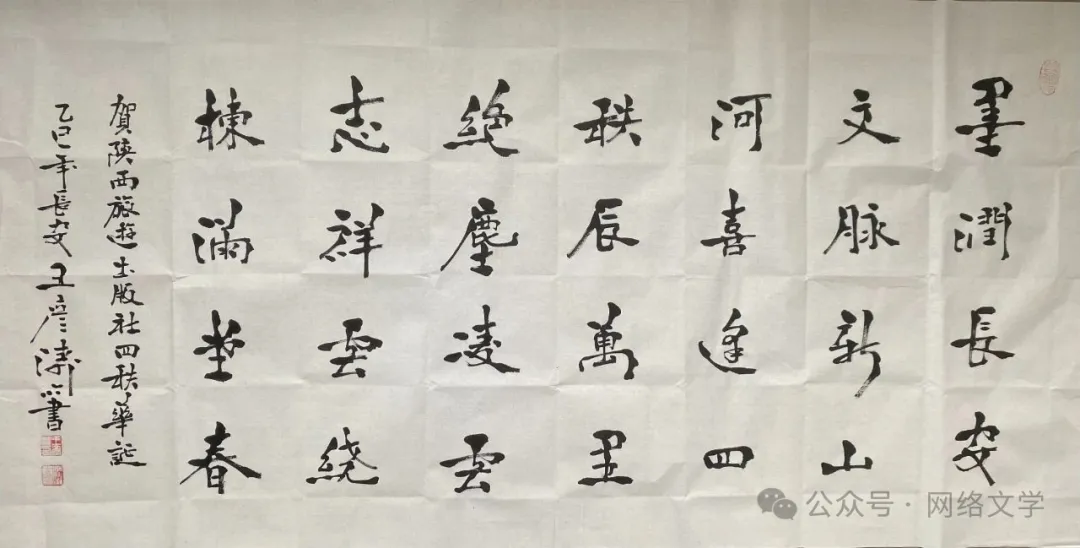 墨潤長安
文脉新山
河喜逢四
秩辰萬里
絶塵凌雲
志祥雲繞
棟滿堂春
賀陝西旅遊出版社四秩華誕
乙巳年長安王彦濤書
公众号·网络文学